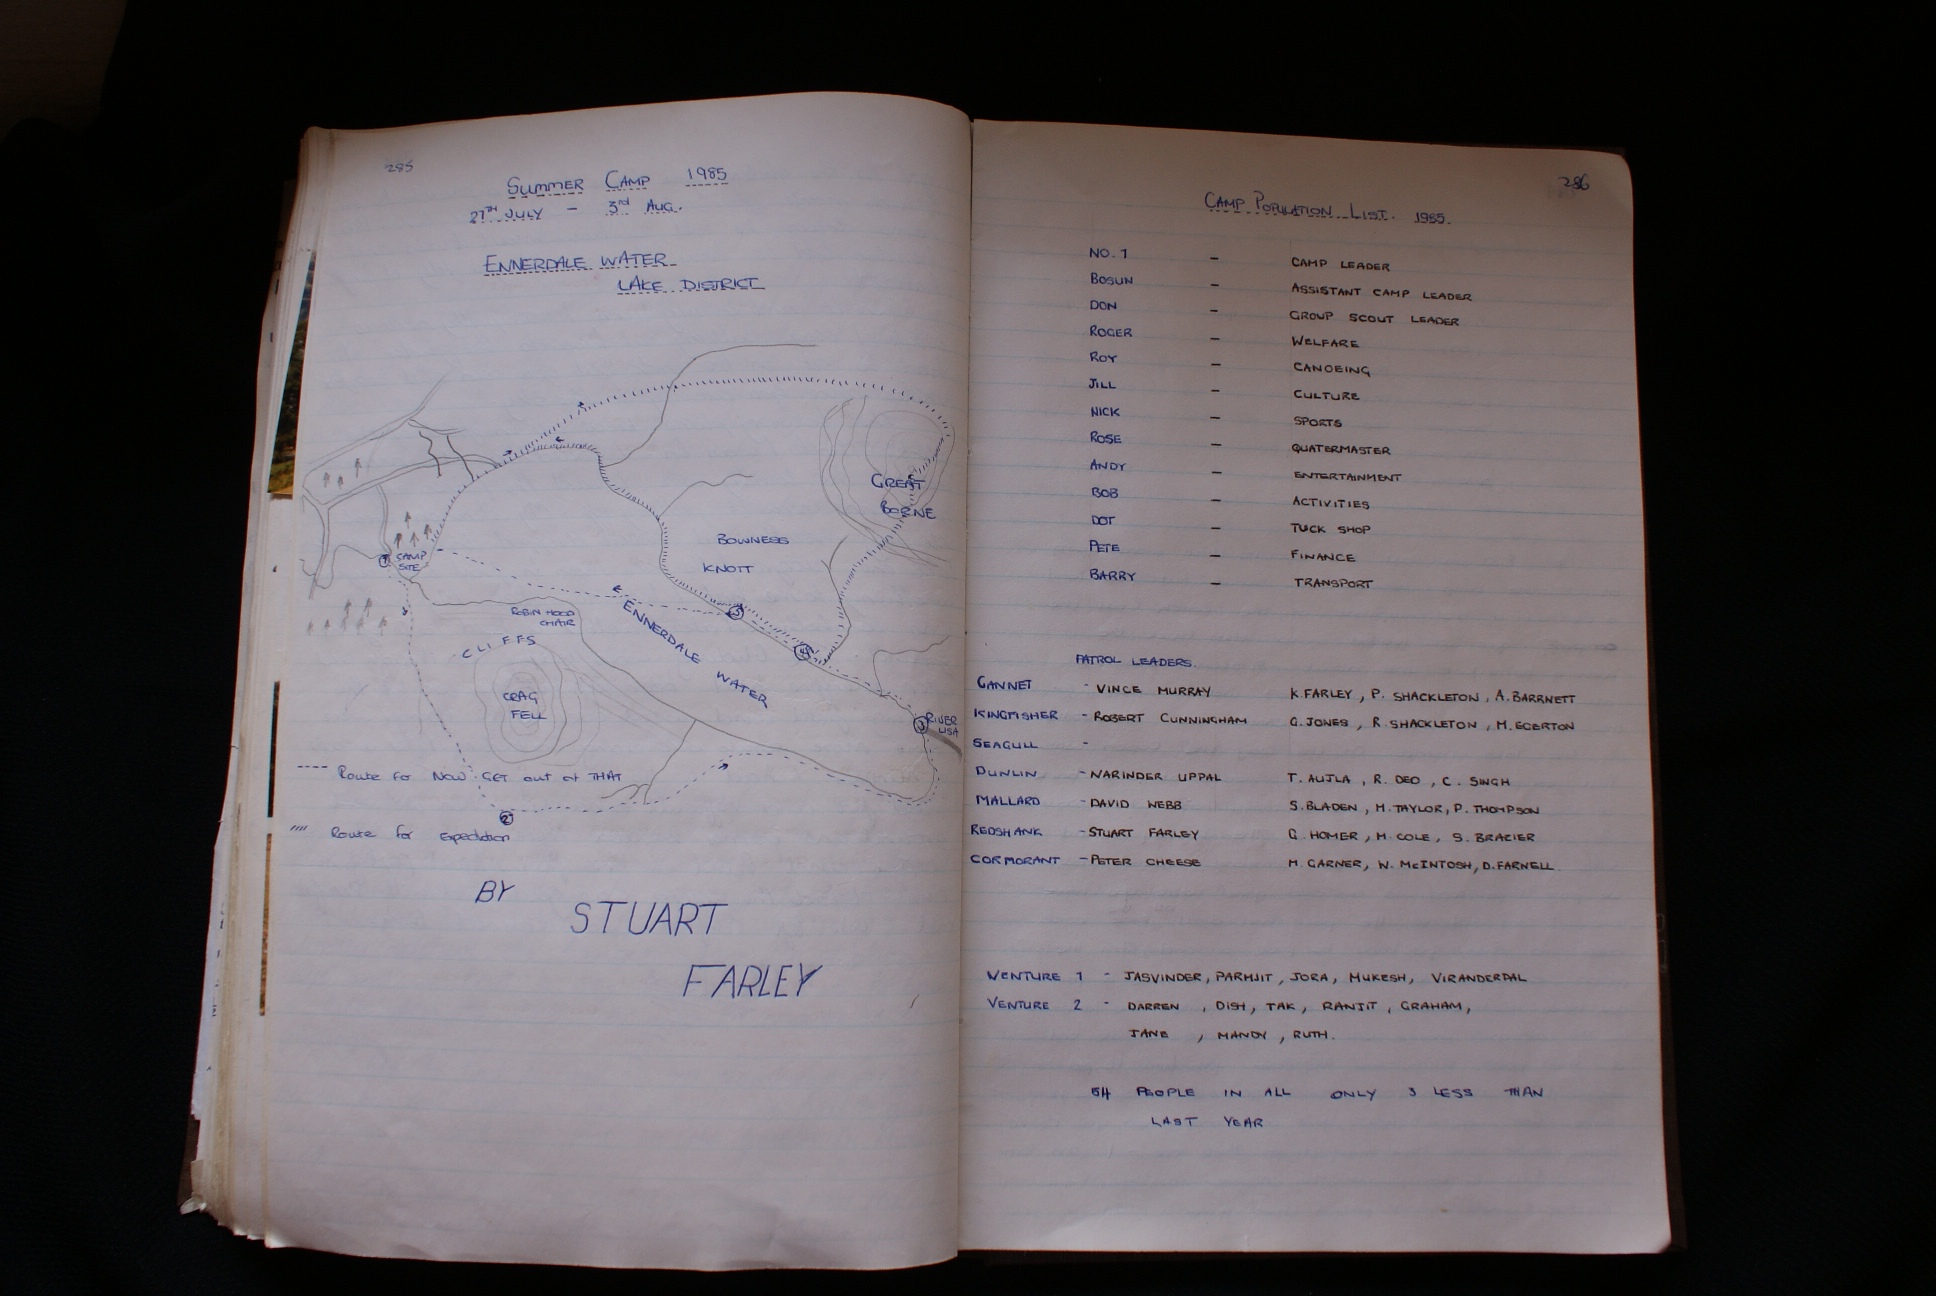 285
SUMMER CAMP 1985
27TH JULY - 3rd AUG.
ENNERDALE WATER
LAKE DISTRICT
GREAT
BORNE
BOWNESS
KNOTT
1
CAMP
SITE
ROBIN HOOD
CHAIR
CLIFFS
ENNERDALE
WATER
5
4
CRAG
FELL
3
RIVER
LISA
---- Route for NOW GET OUT OF THAT
2
//// Route for Expedition
BY
STUART
FARLEY
286
CAMP POPULATION LIST. 1985.
NO. 1 - CAMP LEADER
BOSUN - ASSISTANT CAMP LEADER
DON - GROUP SCOUT LEADER
ROGER - WELFARE
ROY - CANOEING
JILL - CULTURE
NICK - SPORTS
ROSE - QUATERMASTER
ANDY - ENTERTAINMENT
BOB - ACTIVITIES
DOT - TUCK SHOP
PETE - FINANCE
BARRY - TRANSPORT
PATROL LEADERS.
GANNET - VINCE MURRAY K. FARLEY, P. SHACKLETON, A. BARRNETT
KINGFISHER - ROBERT CUNNINGHAM G. JONES, R. SHACKLETON, M. EGERTON
SEAGULL -
DUNLIN - NARINDER UPPAL T. AUJLA, R. DEO, C. SINGH
MALLARD - DAVID WEBB S. BLADEN, M. TAYLOR, P. THOMPSON
REDSHANK - STUART FARLEY G. HOMER, M. COLE, S. BRAZIER
CORMORANT - PETER CHEESE M. GARNER, W. McINTOSH, D. FARNELL.
VENTURE 1 - JASVINDER, PARMJIT, JORA, MUKESH, VIRANDERPAL
VENTURE 2 - DARREN, DISH, TAK, RANJIT, GRAHAM,
JANE, MANDY, RUTH.
54 PEOPLE IN ALL ONLY 3 LESS THAN
LAST YEAR